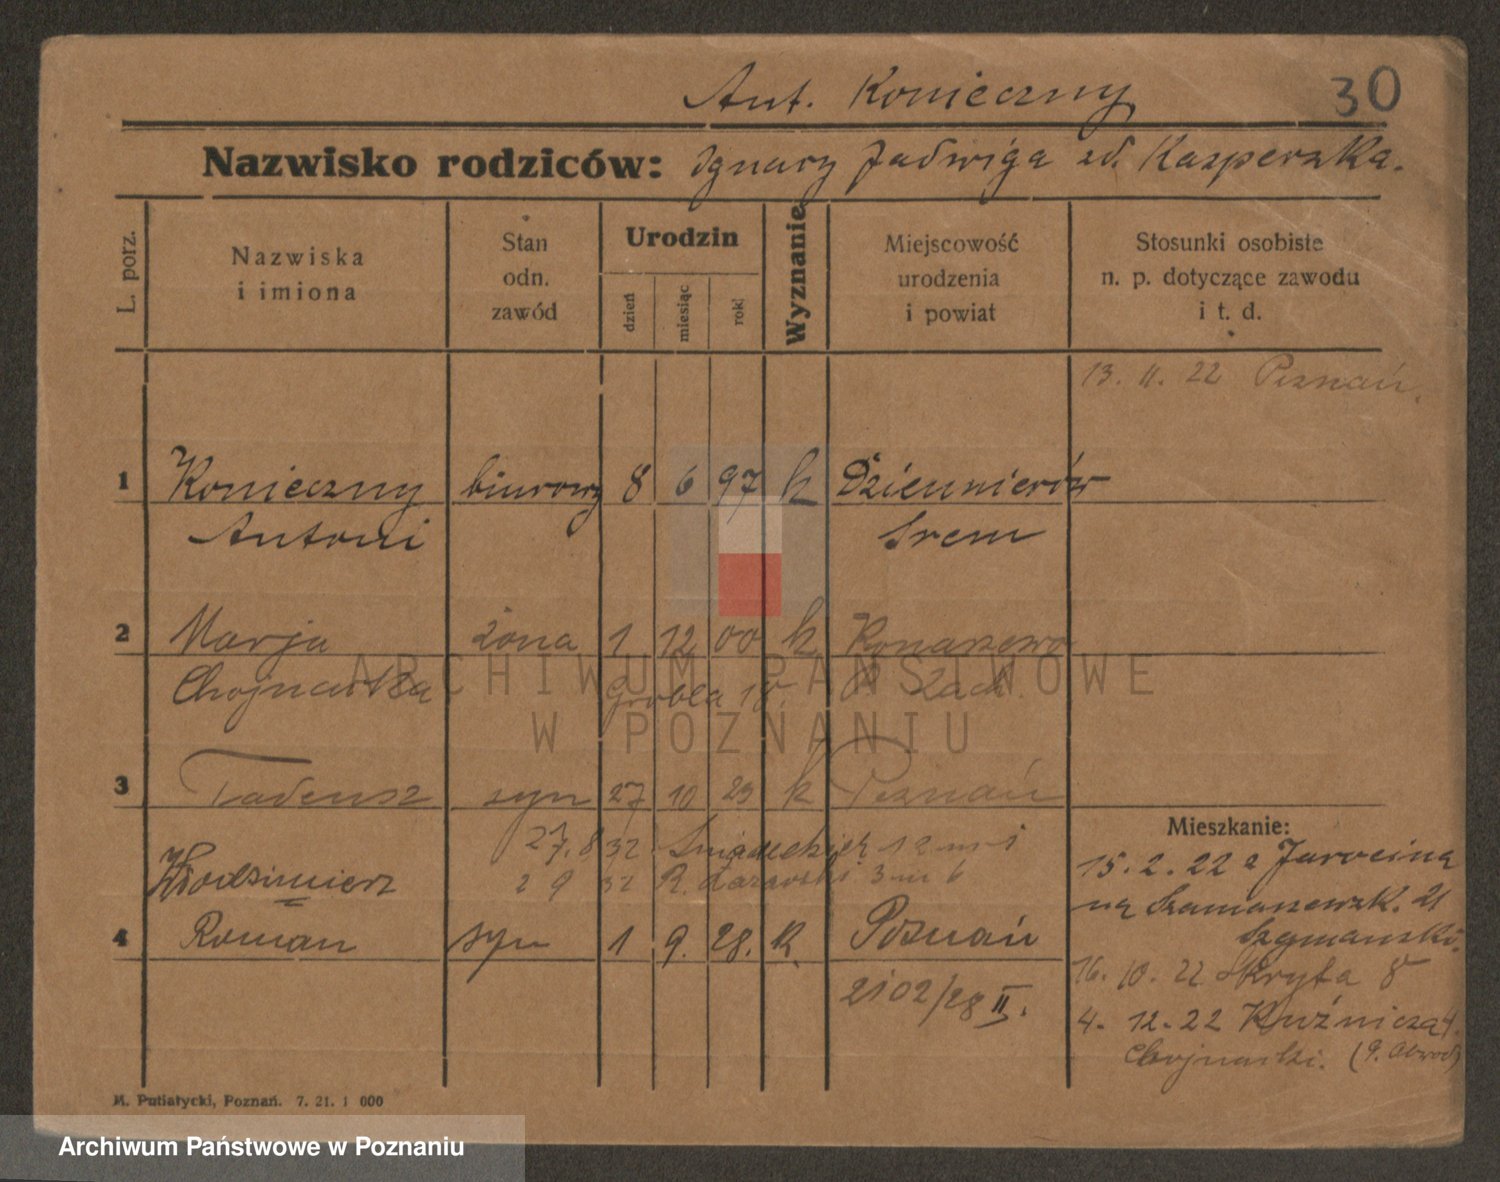 Ant. Konieczny 30
Nazwisko rodziców: Ignacy Jadwiga zd. Kasperska.
L. porz.
Nazwiska
i imiona
Stan
odn.
zawód
Urodzin
dzień
miesiąc
rok
Wyznanie
Miejscowość
urodzenia
i powiat
Stosunki osobiste
n. p. dotyczące zawodu
i t. d.
13. II. 22 Poznań
1 Konieczny biurowy 8 6 97 k Dzienmierów
Antoni Srem
2 Marja żona 1 12 00 k Konarzewo
Chojnacka Grobla 18. P Zach.
3 Tadeusz syn 27 10 23 k Poznań
27.8 32 Śniadeckich 12 m 1
2 9 32 3 m 6
Włodzimierz
4 Roman syn 1 9. 28. k. Poznań
2102/28 II.
Mieszkanie:
15. 2. 22 z Jarocina
na 21
Szymanski.
16. 10. 22 Skryta 8
4. 12. 22 Kuźnicza 4.
Chojnacki. (9. Obwod)
M. Putiatycki, Poznań. 7. 21. 1 000
ARCHIWUM PAŃSTWOWE
W POZNANIU
Archiwum Państwowe w Poznaniu